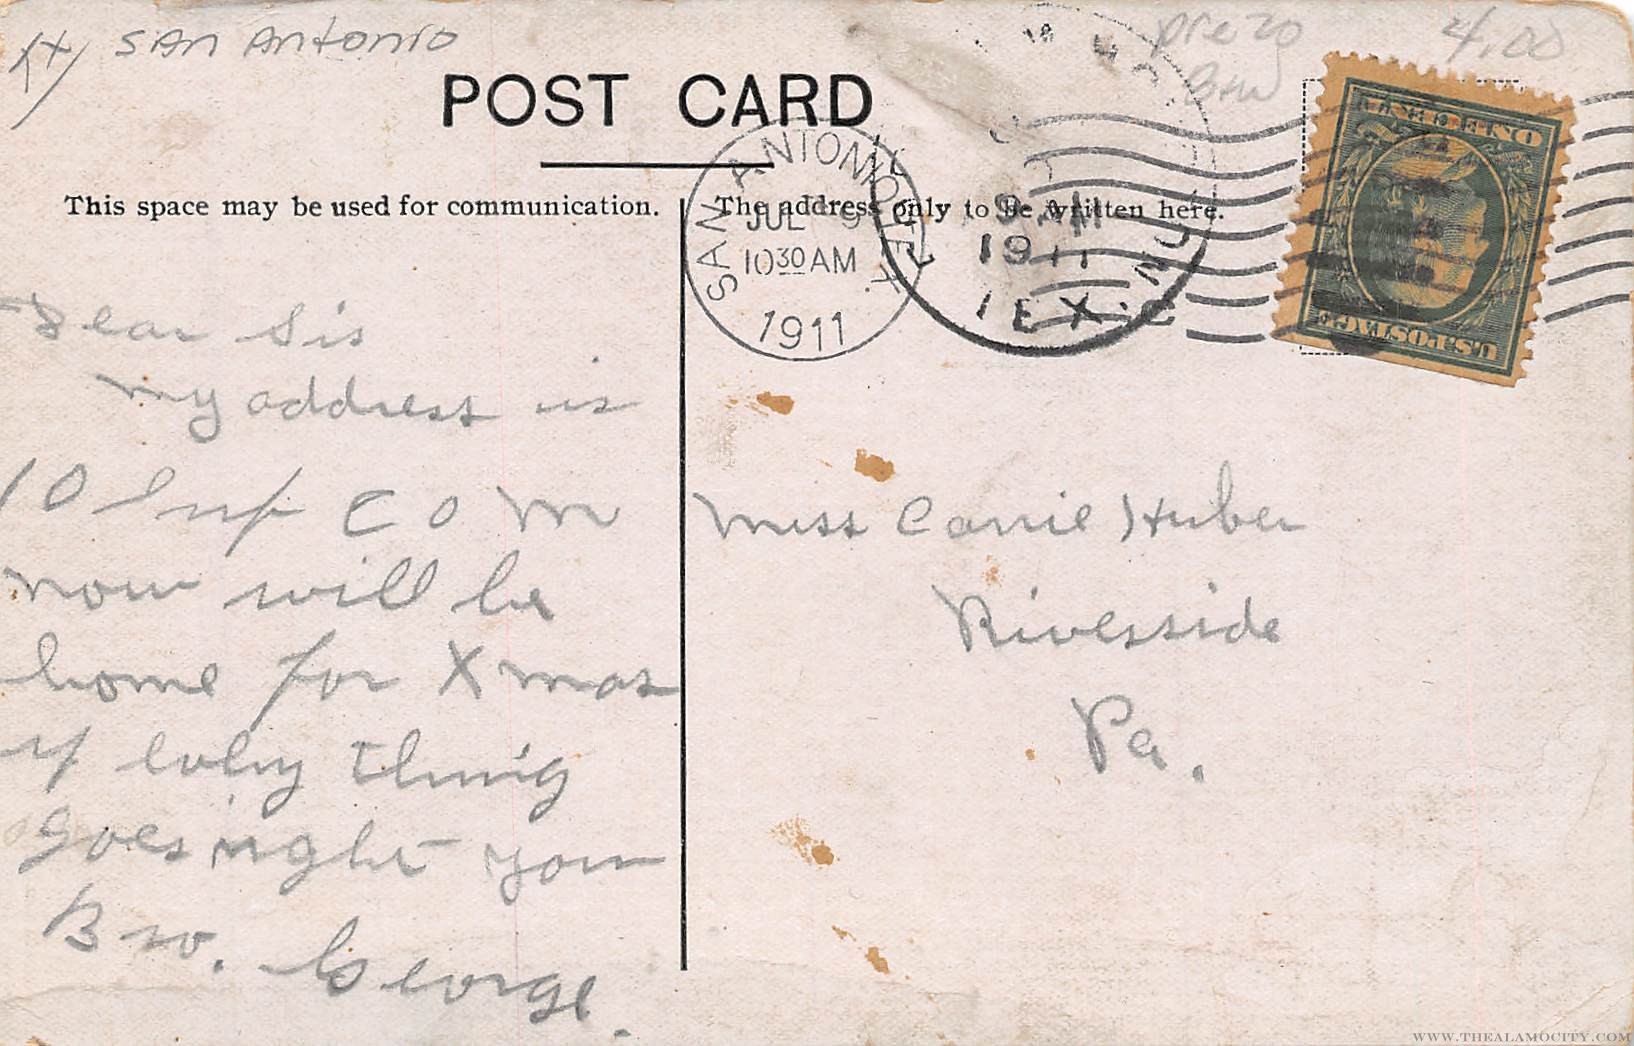 Tx San Antonio
pre 20
B+W
4.00
POST CARD
This space may be used for communication.
The address only to be written here.
SAN ANTONIO, TEX.
JUL 9
1030 AM
1911
AM
1911
TEX.
ONE CENT
U.S. POSTAGE
Dear Sis
my address is
10 Inf Co M
now will be
home for Xmas
if evry thing
goes right your
Bro. George.
Miss Carrie Huber
Riverside
Pa.
WWW.THEALAMOCITY.COM